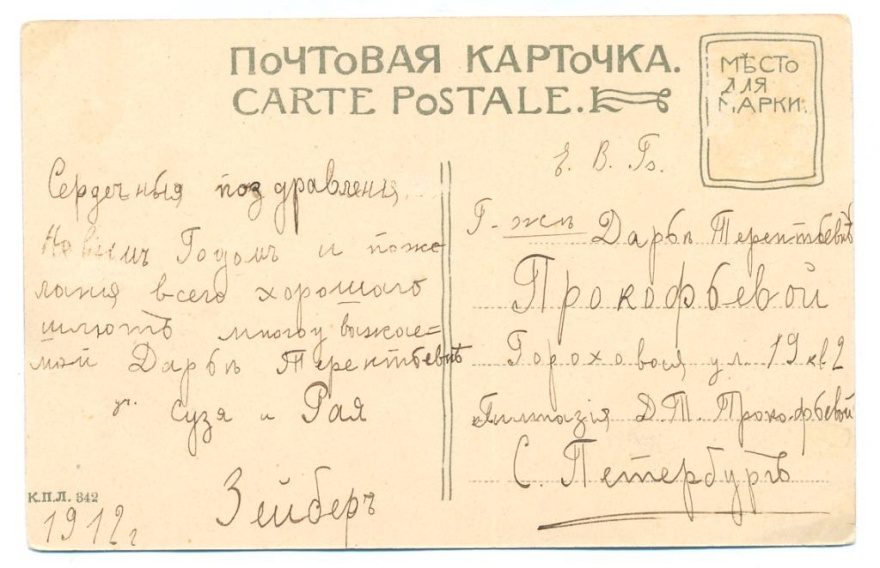 ПОЧТОВАЯ КАРТОЧКА.
CARTE POSTALE.
МѢСТО
ДЛЯ
МАРКИ.
Е. В. Б.
Г-жѣ Дарьѣ Терентьевнѣ
Прокофьевой
Гороховая ул. 19 кв 2
Гимназія Д. Т. Прокофьевой
С. Петербургъ
Сердечныя поздравленія
Новымъ Годомъ и поже
ланія всего хорошаго
шлютъ многоуважае=
мой Дарьѣ Терентьевнѣ
Сузя и Рая
Зейберъ
К.П.Л. 342
1912 г